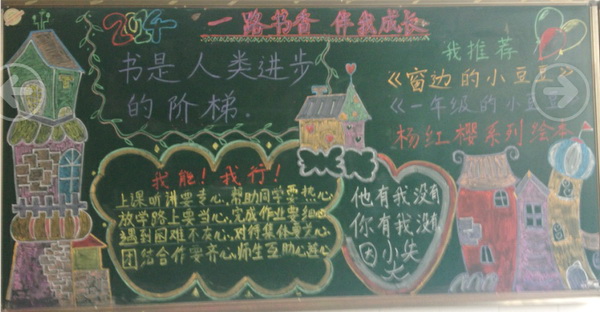 2014
一路书香 伴我成长
书是人类进步
的阶梯.
我推荐
《窗边的小豆豆》
《一年级的小豆豆
杨红樱系列绘本
我能!我行!
上课听讲要专心,帮助同学要热心
放学路上要当心,完成作业要细心
遇到困难不灰心,对待集体要关心
团结合作要齐心,师生互助心连心
他有我没有
你有我没有
因小失
大